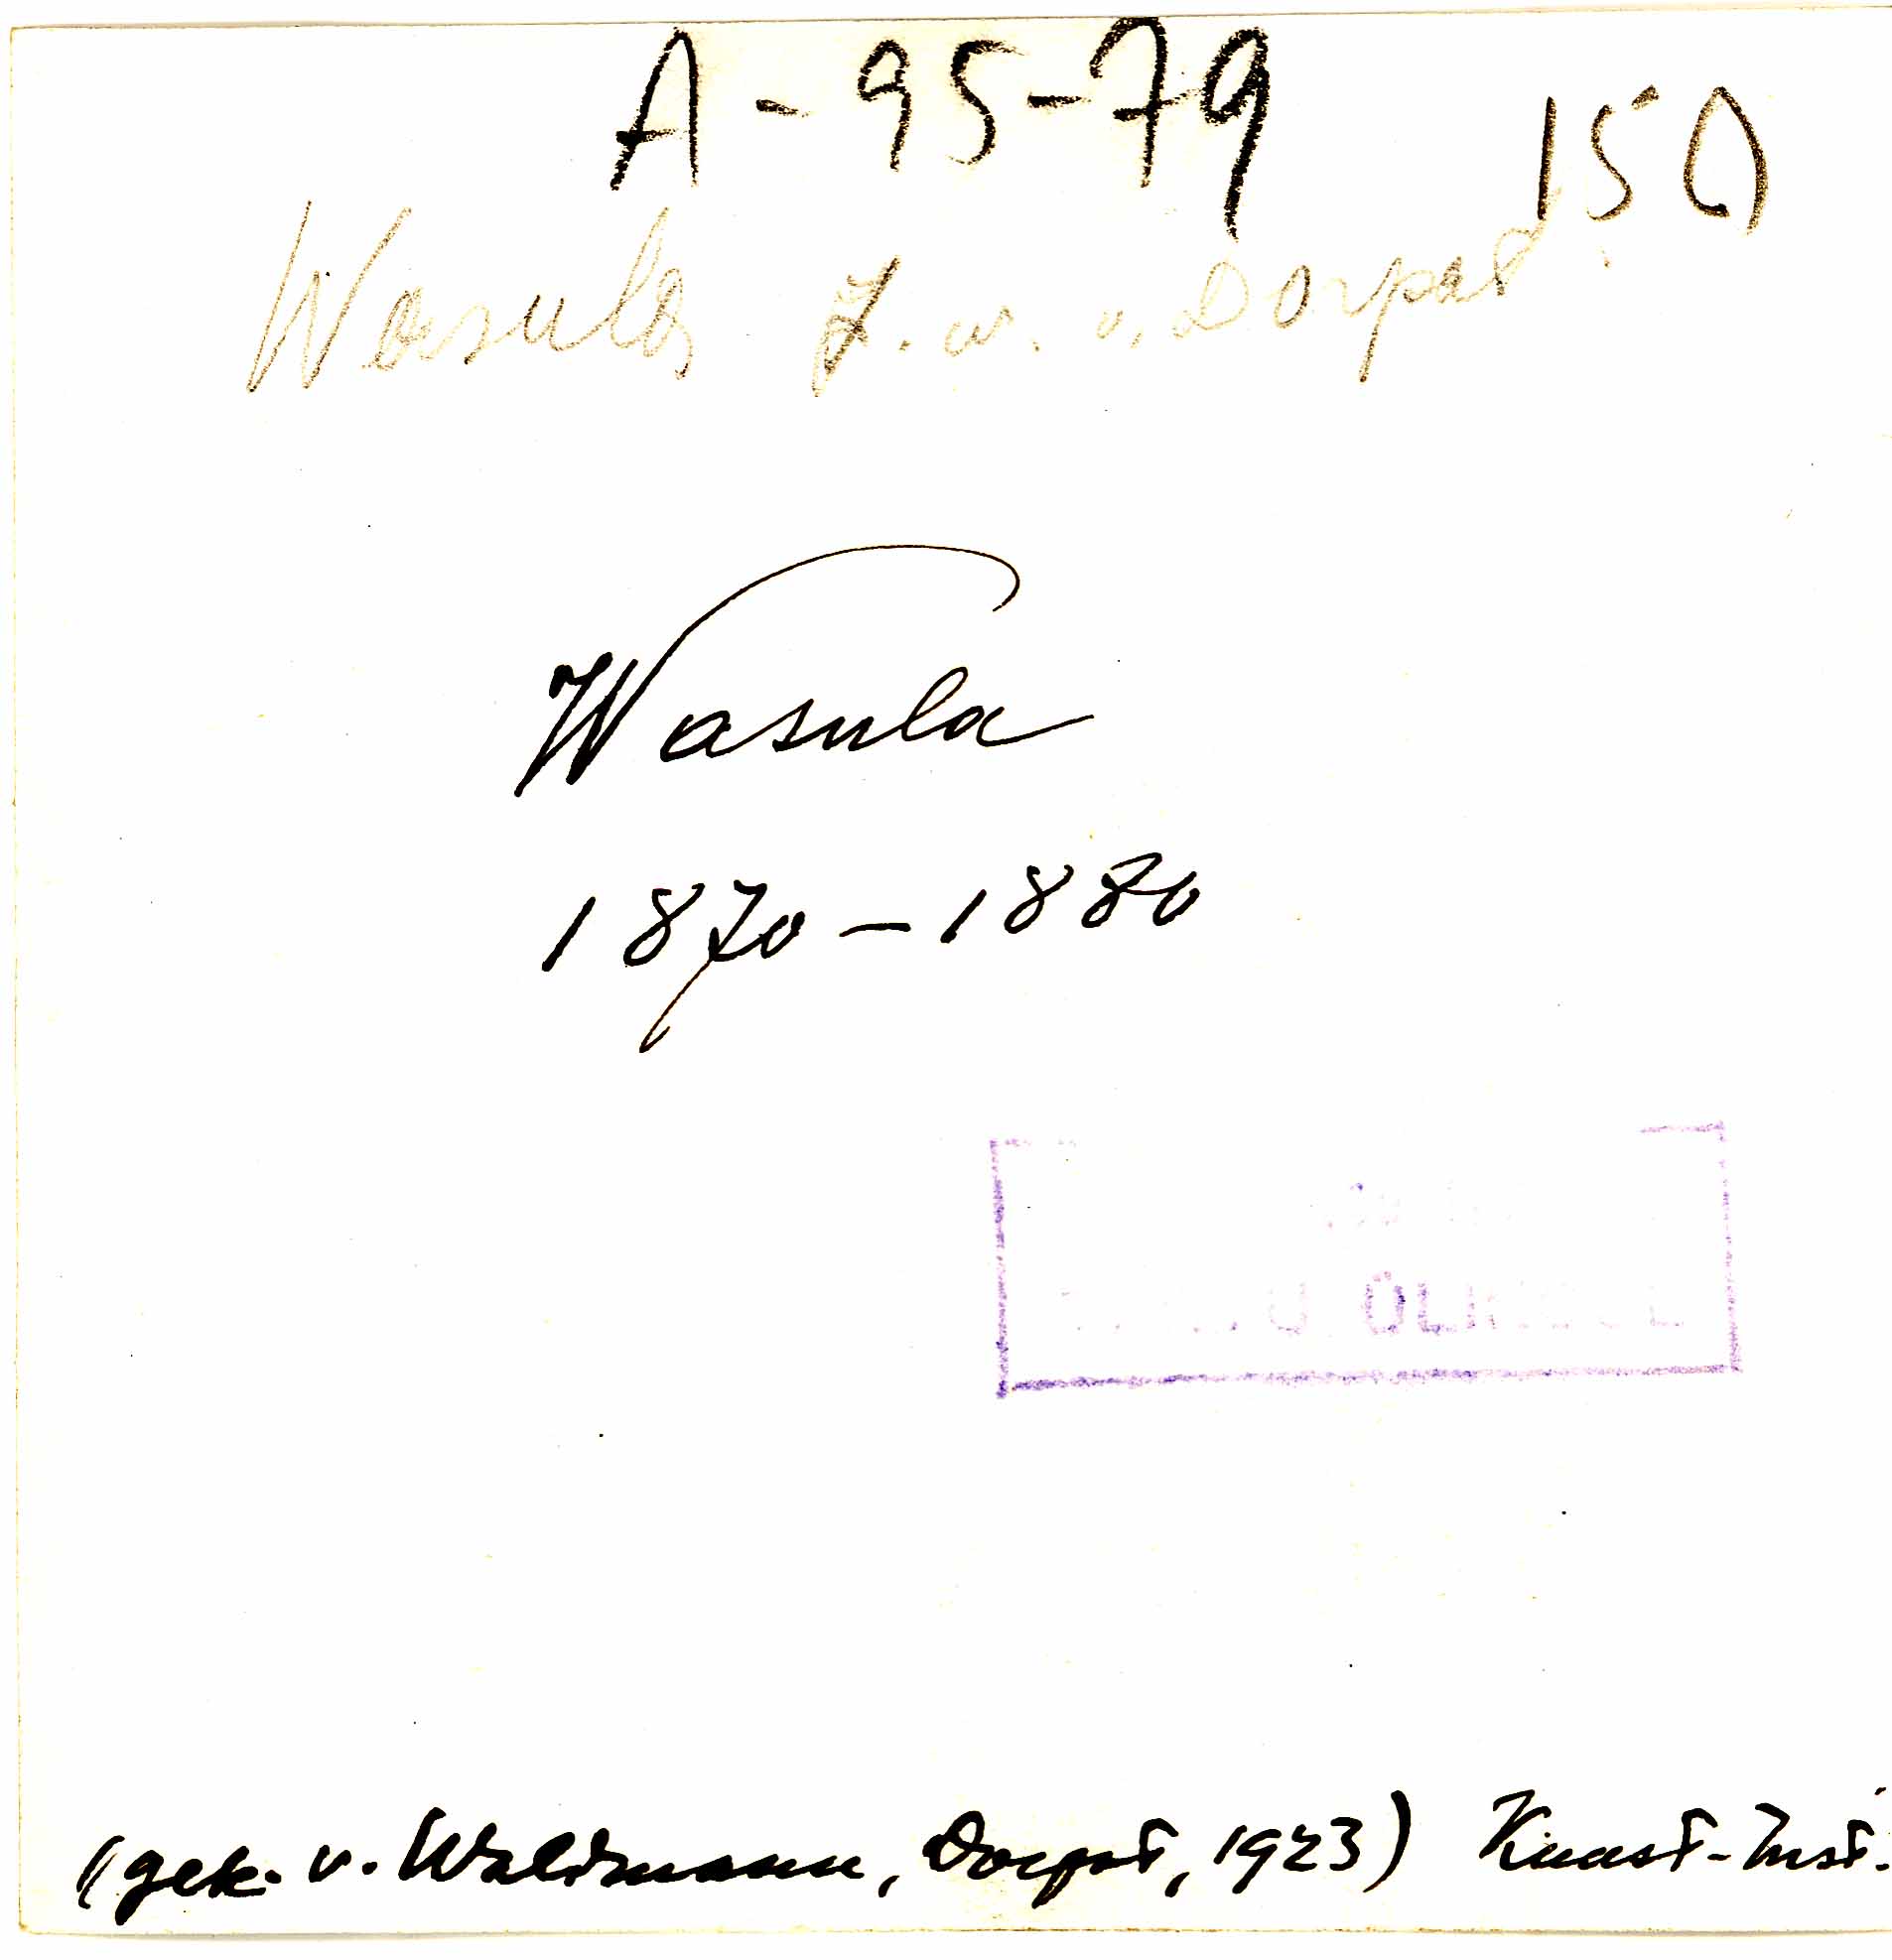 A-95-79
150
Wasula z. w. v. Dorpat
Wasula
1870-1880
(gek. v. Waldmann, Dorpat, 1923) Kunst-Inst.